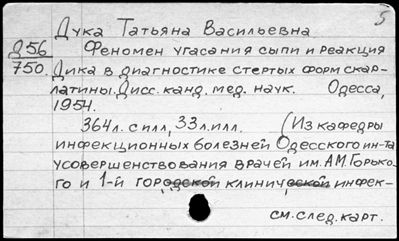 5
Дука Татьяна Васильевна
Д56
750
Феномен угасания сыпи и реакция
Дика в диагностике стертых форм скар-
латины. Дисс. канд. мед. наук. Одесса,
1954.
364л. с илл, 33л. илл. (Из кафедры
инфекционных болезней Одесского ин-та
усовершенствования врачей им. А.М. Горько-
го и 1-й городской клинической инфек-
см. след. карт.